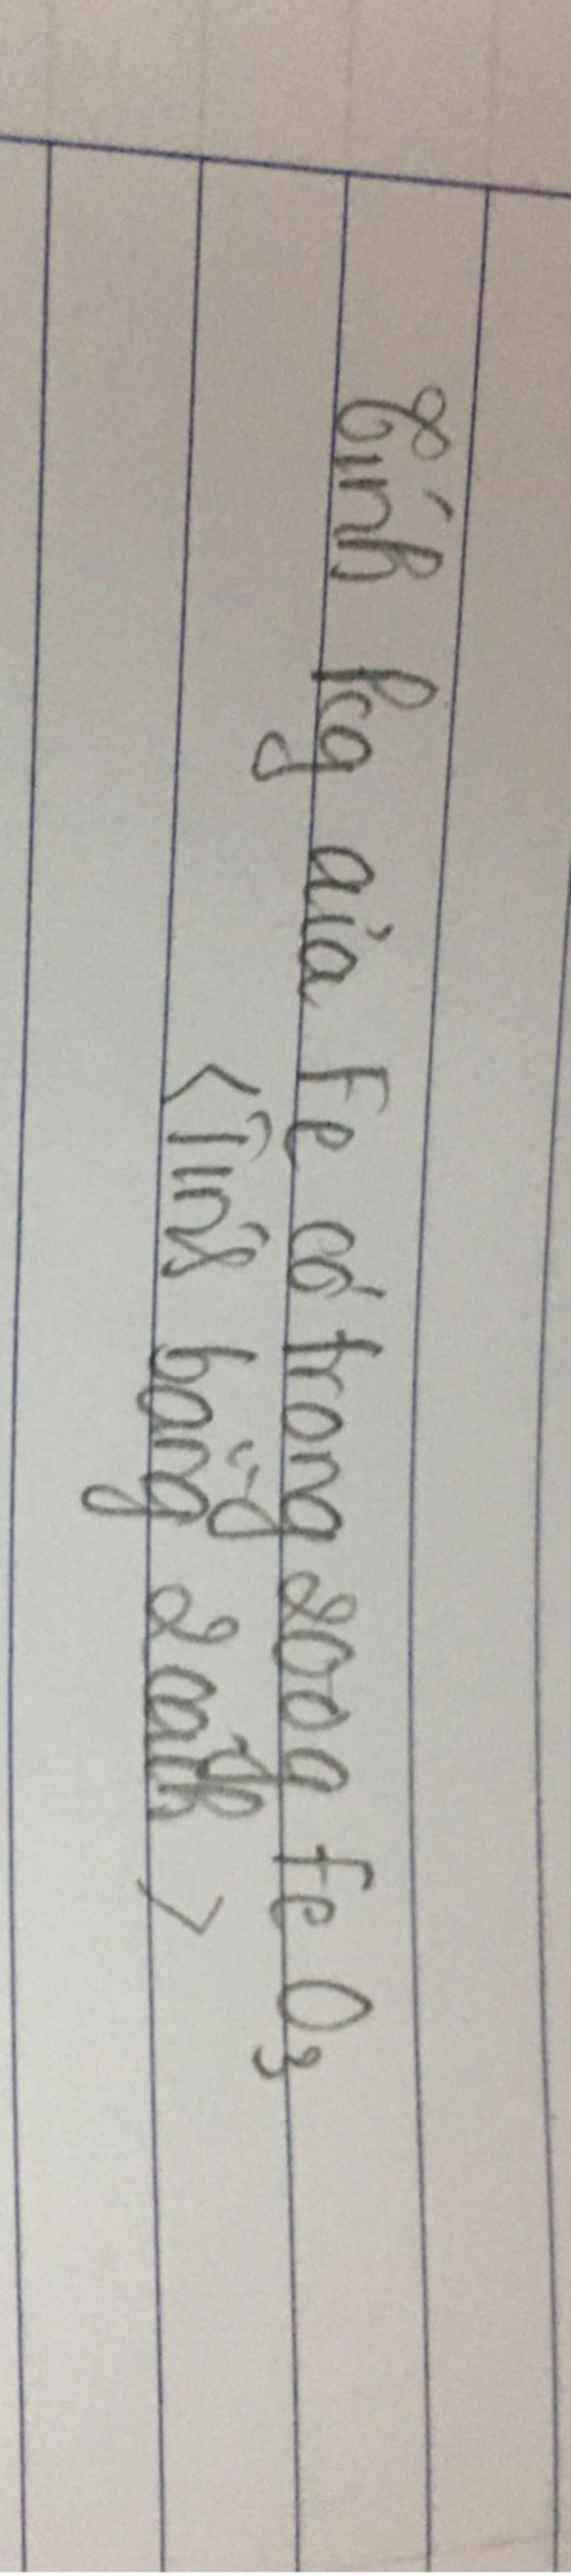 Tính kg của Fe có trong 200g FeO₃
<Tính bằng 2 cách>